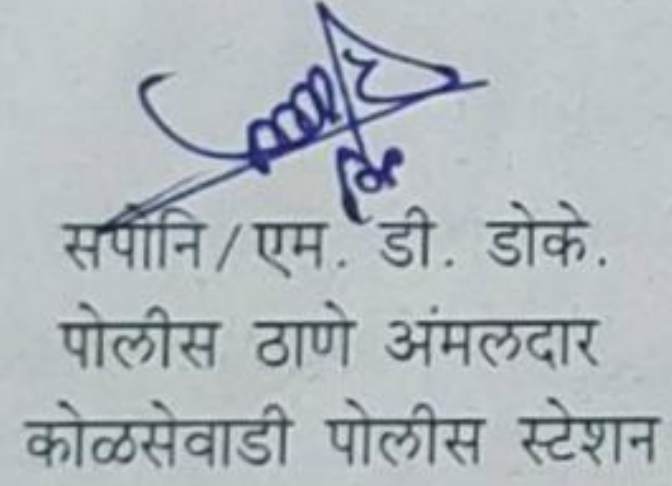 सपोनि/एम. डी. डोके.
पोलीस ठाणे अंमलदार
कोळसेवाडी पोलीस स्टेशन